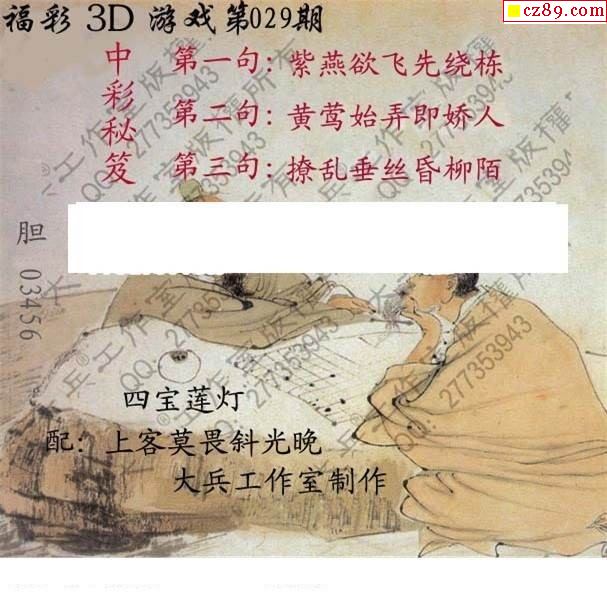 福彩 3D 游戏第029期
cz89.com
中彩秘笈
第一句：紫燕欲飞先绕栋
第二句：黄莺始弄即娇人
第三句：撩乱垂丝昏柳陌
胆 03456
四宝莲灯
配：上客莫畏斜光晚
大兵工作室制作
大兵®工作室版权所有
QQ：277353943